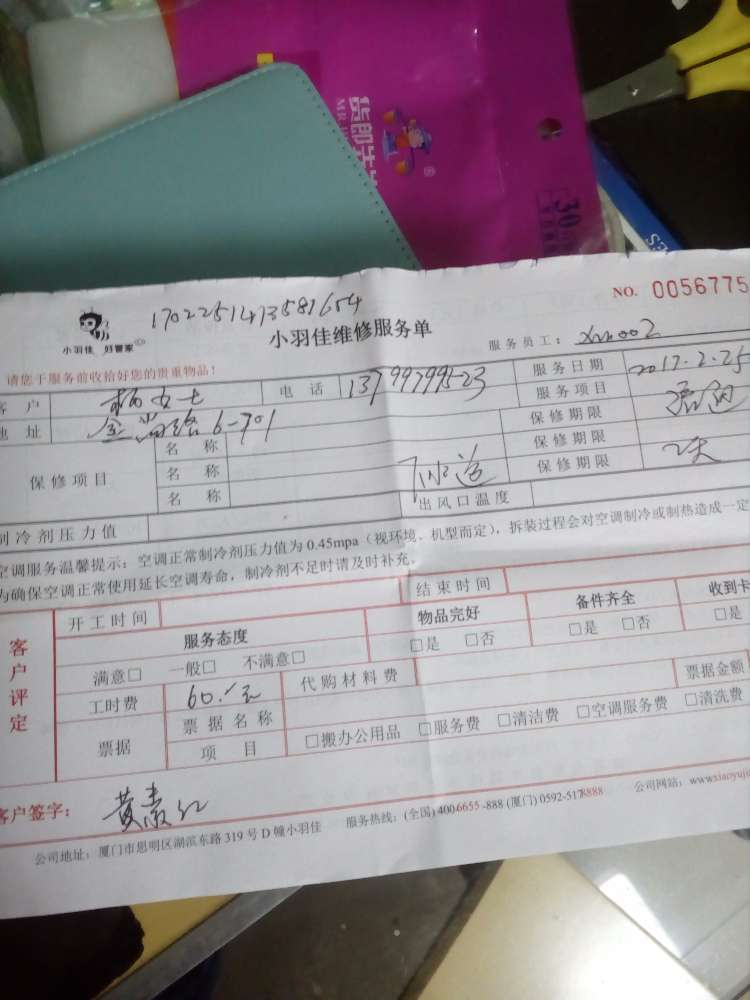 货郎先生
MR
®
30
小羽佳 好管家
1702251473581654
NO. 0056775
小羽佳维修服务单
服务员工: xm002
请您于服务前收拾好您的贵重物品!
客户 杨女士 电话 13799799523 服务日期 2017.2.25
地址 6-701 服务项目 疏通
保修项目 名称 保修期限
名称 下水道 保修期限
名称 保修期限 2天
制冷剂压力值 出风口温度
空调服务温馨提示: 空调正常制冷剂压力值为 0.45mpa (视环境、机型而定), 拆装过程会对空调制冷或制热造成一定
为确保空调正常使用延长空调寿命, 制冷剂不足时请及时补充。
开工时间 结束时间
客户评定
服务态度 物品完好 备件齐全 收到卡
满意□ 一般□ 不满意□ □是 □否 □是 □否 □是
工时费 60.-元 代购材料费 票据金额
票据 票据名称
项目 □搬办公用品 □服务费 □清洁费 □空调服务费 □清洗费
客户签字:
公司地址: 厦门市思明区湖滨东路 319 号 D 幢小羽佳 服务热线: (全国) 4006655-888 (厦门) 0592-5178888 公司网站: www.xiaoyuji